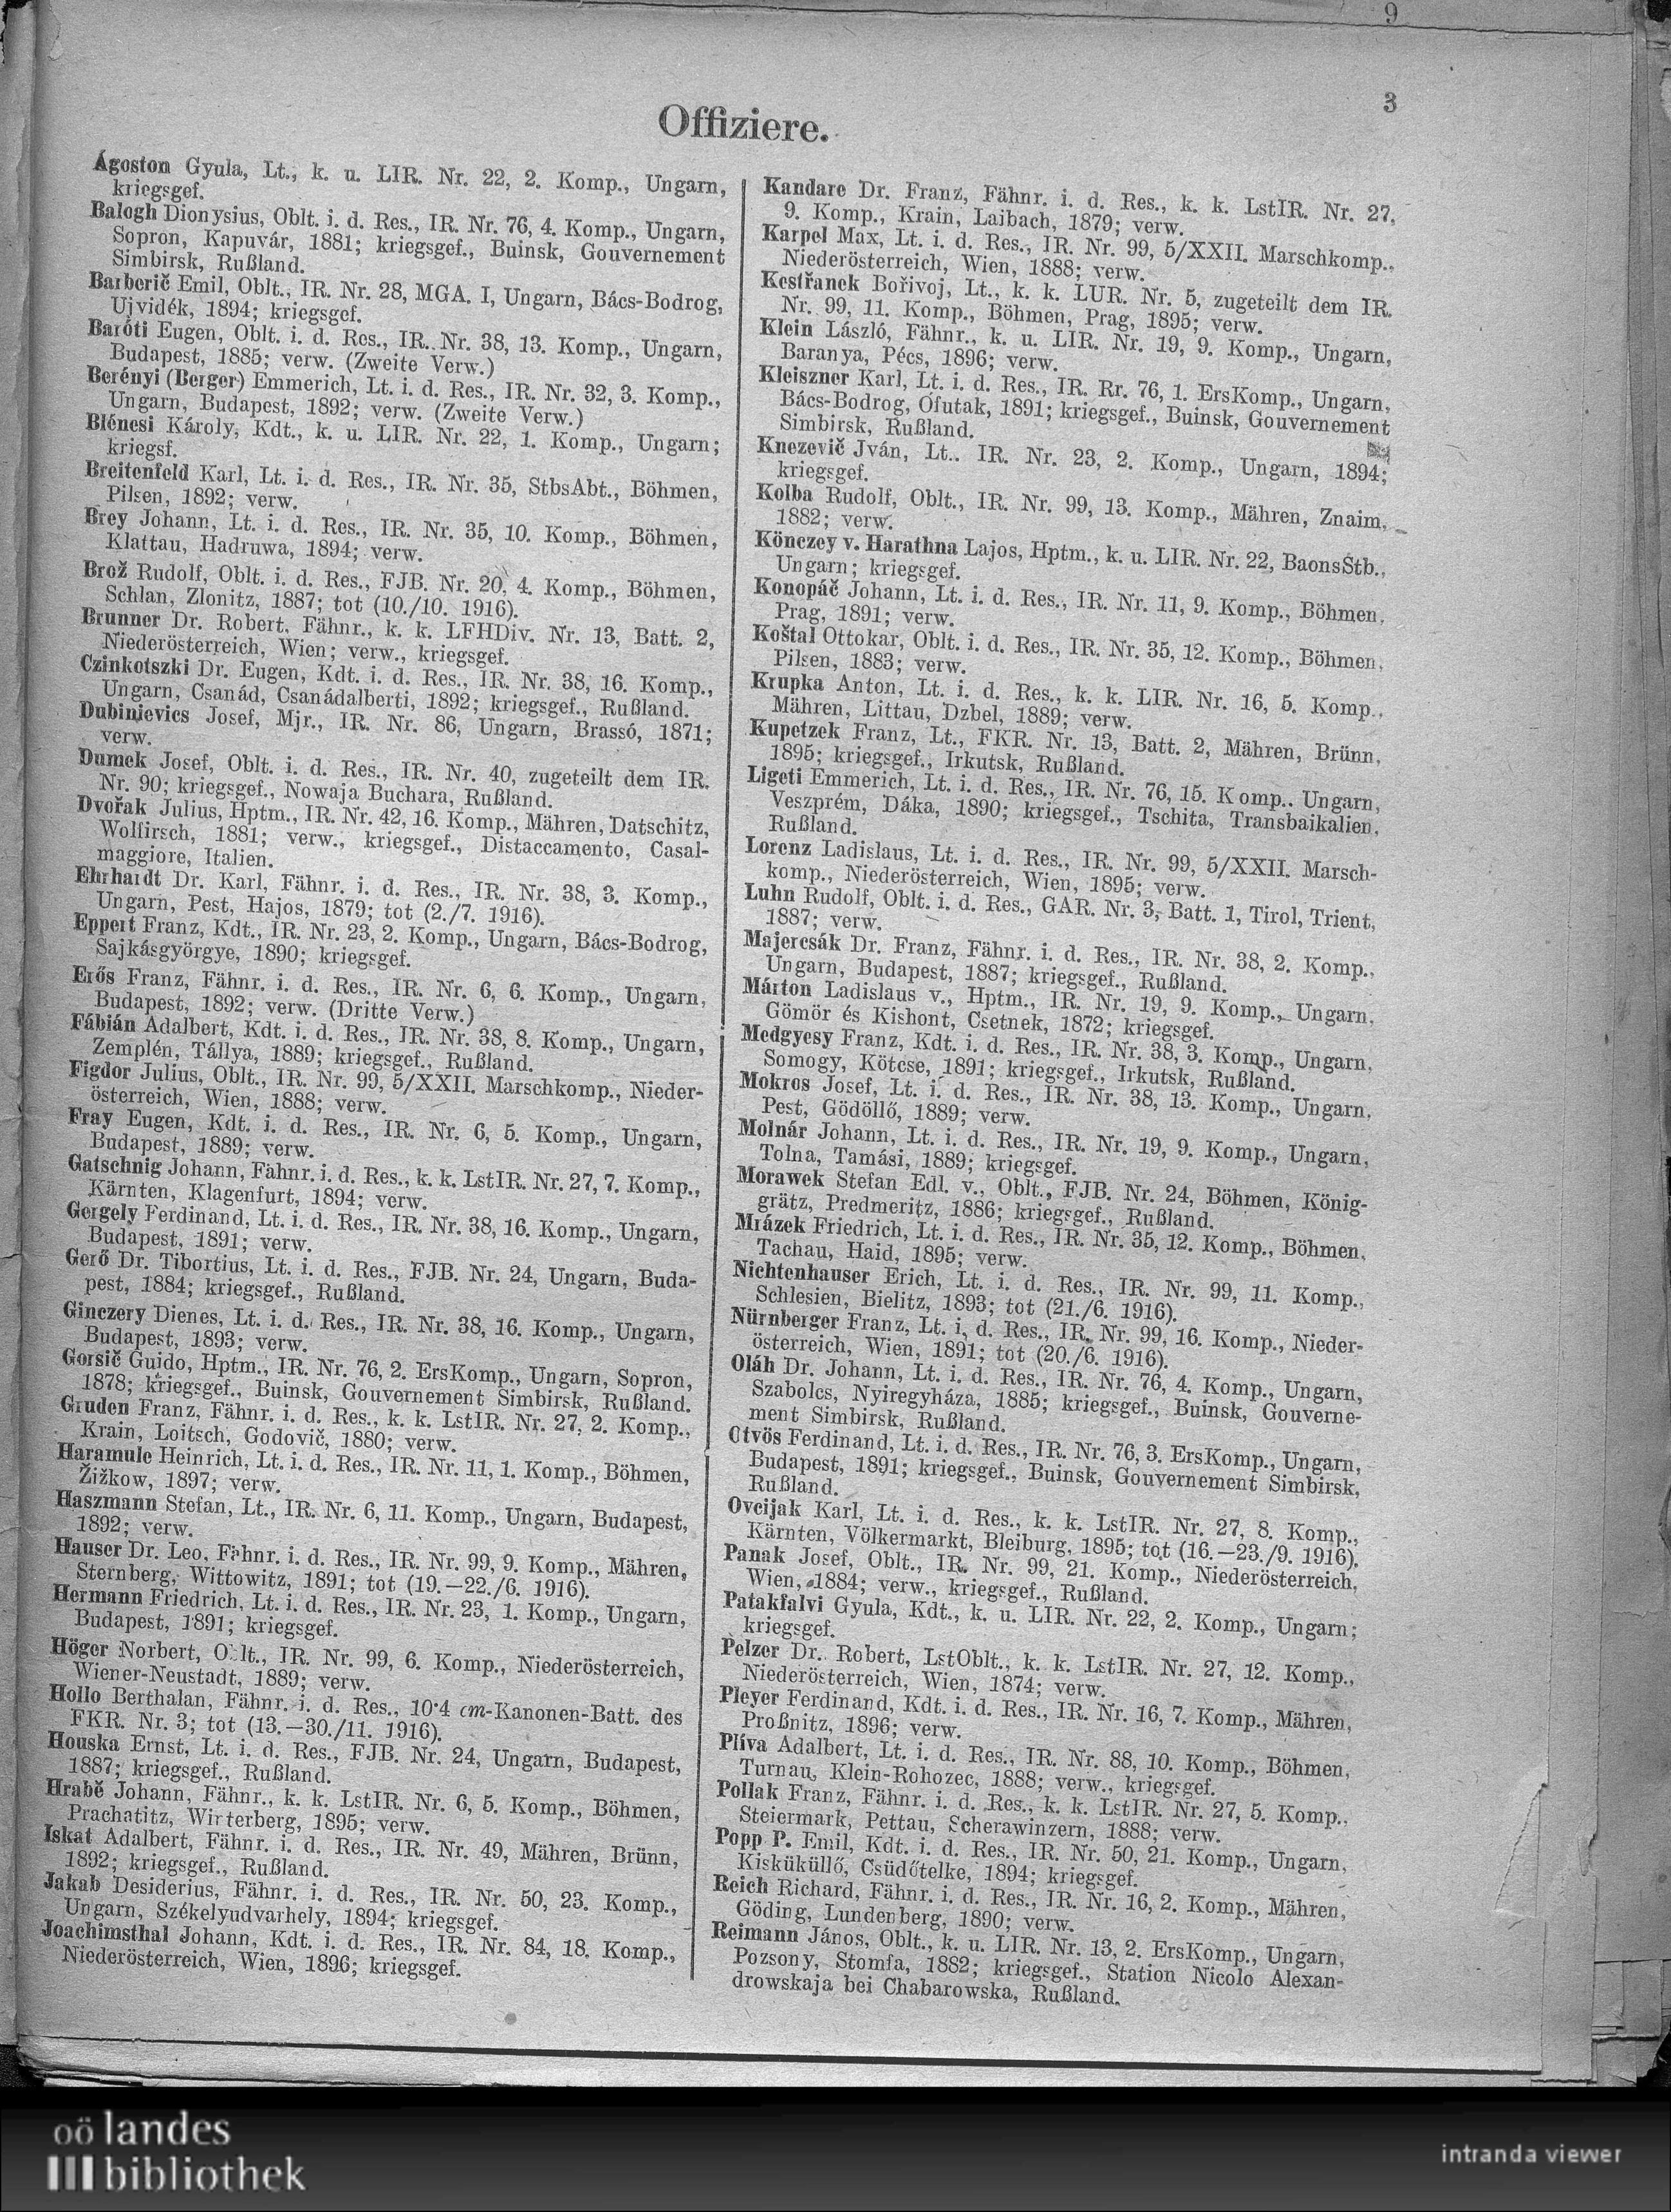 9
3
Offiziere.
Ágoston Gyula, Lt., k. u. LIR. Nr. 22, 2. Komp., Ungarn,
kriegsgef.
Balogh Dionysius, Oblt. i. d. Res., IR. Nr. 76, 4. Komp., Ungarn,
Sopron, Kapuvár, 1881; kriegsgef., Buinsk, Gouvernement
Simbirsk, Rußland.
Barborič Emil, Oblt., IR. Nr. 28, MGA. I, Ungarn, Bács-Bodrog,
Ujvidék, 1894; kriegsgef.
Baróti Eugen, Oblt. i. d. Res., IR. Nr. 38, 13. Komp., Ungarn,
Budapest, 1885; verw. (Zweite Verw.)
Berényi (Berger) Emmerich, Lt. i. d. Res., IR. Nr. 32, 3. Komp.,
Ungarn, Budapest, 1892; verw. (Zweite Verw.)
Blénesi Károly, Kdt., k. u. LIR. Nr. 22, 1. Komp., Ungarn;
kriegsf.
Breitenfeld Karl, Lt. i. d. Res., IR. Nr. 35, StbsAbt., Böhmen,
Pilsen, 1892; verw.
Brey Johann, Lt. i. d. Res., IR. Nr. 35, 10. Komp., Böhmen,
Klattau, Hadruwa, 1894; verw.
Brož Rudolf, Oblt. i. d. Res., FJB. Nr. 20, 4. Komp., Böhmen,
Schlan, Zlonitz, 1887; tot (10./10. 1916).
Brunner Dr. Robert, Fähnr., k. k. LFHDiv. Nr. 13, Batt. 2,
Niederösterreich, Wien; verw., kriegsgef.
Czinkotszki Dr. Eugen, Kdt. i. d. Res., IR. Nr. 38, 16. Komp.,
Ungarn, Csanád, Csanádalberti, 1892; kriegsgef., Rußland.
Dubinievics Josef, Mjr., IR. Nr. 86, Ungarn, Brassó, 1871;
verw.
Dumek Josef, Oblt. i. d. Res., IR. Nr. 40, zugeteilt dem IR.
Nr. 90; kriegsgef., Nowaja Buchara, Rußland.
Dvořak Julius, Hptm., IR. Nr. 42, 16. Komp., Mähren, Datschitz,
Wolfirsch, 1881; verw., kriegsgef., Distaccamento, Casal-
maggiore, Italien.
Ehrhardt Dr. Karl, Fähnr. i. d. Res., IR. Nr. 38, 3. Komp.,
Ungarn, Pest, Hajos, 1879; tot (2./7. 1916).
Eppert Franz, Kdt., IR. Nr. 23, 2. Komp., Ungarn, Bács-Bodrog,
Sajkásgyörgye, 1890; kriegsgef.
Erős Franz, Fähnr. i. d. Res., IR. Nr. 6, 6. Komp., Ungarn,
Budapest, 1892; verw. (Dritte Verw.)
Fábián Adalbert, Kdt. i. d. Res., IR. Nr. 38, 8. Komp., Ungarn,
Zemplén, Tállya, 1889; kriegsgef., Rußland.
Figdor Julius, Oblt., IR. Nr. 99, 5/XXII. Marschkomp., Nieder-
österreich, Wien, 1888; verw.
Fray Eugen, Kdt. i. d. Res., IR. Nr. 6, 5. Komp., Ungarn,
Budapest, 1889; verw.
Gatschnig Johann, Fähnr. i. d. Res., k. k. LstIR. Nr. 27, 7. Komp.,
Kärnten, Klagenfurt, 1894; verw.
Gergely Ferdinand, Lt. i. d. Res., IR. Nr. 38, 16. Komp., Ungarn,
Budapest, 1891; verw.
Gerő Dr. Tibortius, Lt. i. d. Res., FJB. Nr. 24, Ungarn, Buda-
pest, 1884; kriegsgef., Rußland.
Ginczery Dienes, Lt. i. d. Res., IR. Nr. 38, 16. Komp., Ungarn,
Budapest, 1893; verw.
Gorsič Guido, Hptm., IR. Nr. 76, 2. ErsKomp., Ungarn, Sopron,
1878; kriegsgef., Buinsk, Gouvernement Simbirsk, Rußland.
Gruden Franz, Fähnr. i. d. Res., k. k. LstIR. Nr. 27, 2. Komp.,
Krain, Loitsch, Godovič, 1880; verw.
Haramule Heinrich, Lt. i. d. Res., IR. Nr. 11, 1. Komp., Böhmen,
Žižkow, 1897; verw.
Haszmann Stefan, Lt., IR. Nr. 6, 11. Komp., Ungarn, Budapest,
1892; verw.
Hauser Dr. Leo, Fähnr. i. d. Res., IR. Nr. 99, 9. Komp., Mähren,
Sternberg, Wittowitz, 1891; tot (19.—22./6. 1916).
Hermann Friedrich, Lt. i. d. Res., IR. Nr. 23, 1. Komp., Ungarn,
Budapest, 1891; kriegsgef.
Höger Norbert, Oblt., IR. Nr. 99, 6. Komp., Niederösterreich,
Wiener-Neustadt, 1889; verw.
Hollo Berthalan, Fähnr. i. d. Res., 10·4 cm-Kanonen-Batt. des
FKR. Nr. 3; tot (13.—30./11. 1916).
Houska Ernst, Lt. i. d. Res., FJB. Nr. 24, Ungarn, Budapest,
1887; kriegsgef., Rußland.
Hrabě Johann, Fähnr., k. k. LstIR. Nr. 6, 5. Komp., Böhmen,
Prachatitz, Winterberg, 1895; verw.
Iskat Adalbert, Fähnr. i. d. Res., IR. Nr. 49, Mähren, Brünn,
1892; kriegsgef., Rußland.
Jakab Desiderius, Fähnr. i. d. Res., IR. Nr. 50, 23. Komp.,
Ungarn, Székelyudvarhely, 1894; kriegsgef.
Joachimsthal Johann, Kdt. i. d. Res., IR. Nr. 84, 18. Komp.,
Niederösterreich, Wien, 1896; kriegsgef.
Kandare Dr. Franz, Fähnr. i. d. Res., k. k. LstIR. Nr. 27,
9. Komp., Krain, Laibach, 1879; verw.
Karpel Max, Lt. i. d. Res., IR. Nr. 99, 5/XXII. Marschkomp.,
Niederösterreich, Wien, 1888; verw.
Kestřanek Bořivoj, Lt., k. k. LUR. Nr. 5, zugeteilt dem IR.
Nr. 99, 11. Komp., Böhmen, Prag, 1895; verw.
Klein László, Fähnr., k. u. LIR. Nr. 19, 9. Komp., Ungarn,
Baranya, Pécs, 1896; verw.
Kleiszner Karl, Lt. i. d. Res., IR. Rr. 76, 1. ErsKomp., Ungarn,
Bács-Bodrog, Ófutak, 1891; kriegsgef., Buinsk, Gouvernement
Simbirsk, Rußland.
Knezevič Jván, Lt.. IR. Nr. 23, 2. Komp., Ungarn, 1894;
kriegsgef.
Kolba Rudolf, Oblt., IR. Nr. 99, 13. Komp., Mähren, Znaim,
1882; verw.
Könczey v. Harathna Lajos, Hptm., k. u. LIR. Nr. 22, BaonsStb.,
Ungarn; kriegsgef.
Konopáč Johann, Lt. i. d. Res., IR. Nr. 11, 9. Komp., Böhmen,
Prag, 1891; verw.
Koštal Ottokar, Oblt. i. d. Res., IR. Nr. 35, 12. Komp., Böhmen,
Pilsen, 1883; verw.
Krupka Anton, Lt. i. d. Res., k. k. LIR. Nr. 16, 5. Komp.,
Mähren, Littau, Dzbel, 1889; verw.
Kupetzek Franz, Lt., FKR. Nr. 13, Batt. 2, Mähren, Brünn,
1895; kriegsgef., Irkutsk, Rußland.
Ligeti Emmerich, Lt. i. d. Res., IR. Nr. 76, 15. Komp.. Ungarn,
Veszprém, Dáka, 1890; kriegsgef., Tschita, Transbaikalien,
Rußland.
Lorenz Ladislaus, Lt. i. d. Res., IR. Nr. 99, 5/XXII. Marsch-
komp., Niederösterreich, Wien, 1895; verw.
Luhn Rudolf, Oblt. i. d. Res., GAR. Nr. 3, Batt. 1, Tirol, Trient,
1887; verw.
Majercsák Dr. Franz, Fähnr. i. d. Res., IR. Nr. 38, 2. Komp.,
Ungarn, Budapest, 1887; kriegsgef., Rußland.
Márton Ladislaus v., Hptm., IR. Nr. 19, 9. Komp., Ungarn,
Gömör és Kishont, Csetnek, 1872; kriegsgef.
Medgyesy Franz, Kdt. i. d. Res., IR. Nr. 38, 3. Komp., Ungarn,
Somogy, Kötcse, 1891; kriegsgef., Irkutsk, Rußland.
Mokros Josef, Lt. i. d. Res., IR. Nr. 38, 13. Komp., Ungarn,
Pest, Gödöllő, 1889; verw.
Molnár Johann, Lt. i. d. Res., IR. Nr. 19, 9. Komp., Ungarn,
Tolna, Tamási, 1889; kriegsgef.
Morawek Stefan Edl. v., Oblt., FJB. Nr. 24, Böhmen, König-
grätz, Predmeritz, 1886; kriegsgef., Rußland.
Mrázek Friedrich, Lt. i. d. Res., IR. Nr. 35, 12. Komp., Böhmen,
Tachau, Haid, 1895; verw.
Nichtenhauser Erich, Lt. i. d. Res., IR. Nr. 99, 11. Komp.,
Schlesien, Bielitz, 1893; tot (21./6. 1916).
Nürnberger Franz, Lt. i. d. Res., IR. Nr. 99, 16. Komp., Nieder-
österreich, Wien, 1891; tot (20./6. 1916).
Oláh Dr. Johann, Lt. i. d. Res., IR. Nr. 76, 4. Komp., Ungarn,
Szabolcs, Nyiregyháza, 1885; kriegsgef., Buinsk, Gouverne-
ment Simbirsk, Rußland.
Ötvös Ferdinand, Lt. i. d. Res., IR. Nr. 76, 3. ErsKomp., Ungarn,
Budapest, 1891; kriegsgef., Buinsk, Gouvernement Simbirsk,
Rußland.
Ovcijak Karl, Lt. i. d. Res., k. k. LstIR. Nr. 27, 8. Komp.,
Kärnten, Völkermarkt, Bleiburg, 1895; tot (16.—23./9. 1916).
Panak Josef, Oblt., IR. Nr. 99, 21. Komp., Niederösterreich,
Wien, 1884; verw., kriegsgef., Rußland.
Patakfalvi Gyula, Kdt., k. u. LIR. Nr. 22, 2. Komp., Ungarn;
kriegsgef.
Pelzer Dr. Robert, LstOblt., k. k. LstIR. Nr. 27, 12. Komp.,
Niederösterreich, Wien, 1874; verw.
Pleyer Ferdinand, Kdt. i. d. Res., IR. Nr. 16, 7. Komp., Mähren,
Proßnitz, 1896; verw.
Plíva Adalbert, Lt. i. d. Res., IR. Nr. 88, 10. Komp., Böhmen,
Turnau, Klein-Rohozec, 1888; verw., kriegsgef.
Pollak Franz, Fähnr. i. d. Res., k. k. LstIR. Nr. 27, 5. Komp.,
Steiermark, Pettau, Scherawinzern, 1888; verw.
Popp P. Emil, Kdt. i. d. Res., IR. Nr. 50, 21. Komp., Ungarn,
Kisküküllő, Csüdőtelke, 1894; kriegsgef.
Reich Richard, Fähnr. i. d. Res., IR. Nr. 16, 2. Komp., Mähren,
Göding, Lundenberg, 1890; verw.
Reimann János, Oblt., k. u. LIR. Nr. 13, 2. ErsKomp., Ungarn,
Pozsony, Stomfa, 1882; kriegsgef., Station Nicolo Alexan-
drowskaja bei Chabarowska, Rußland.
oö landes
bibliothek
intranda viewer